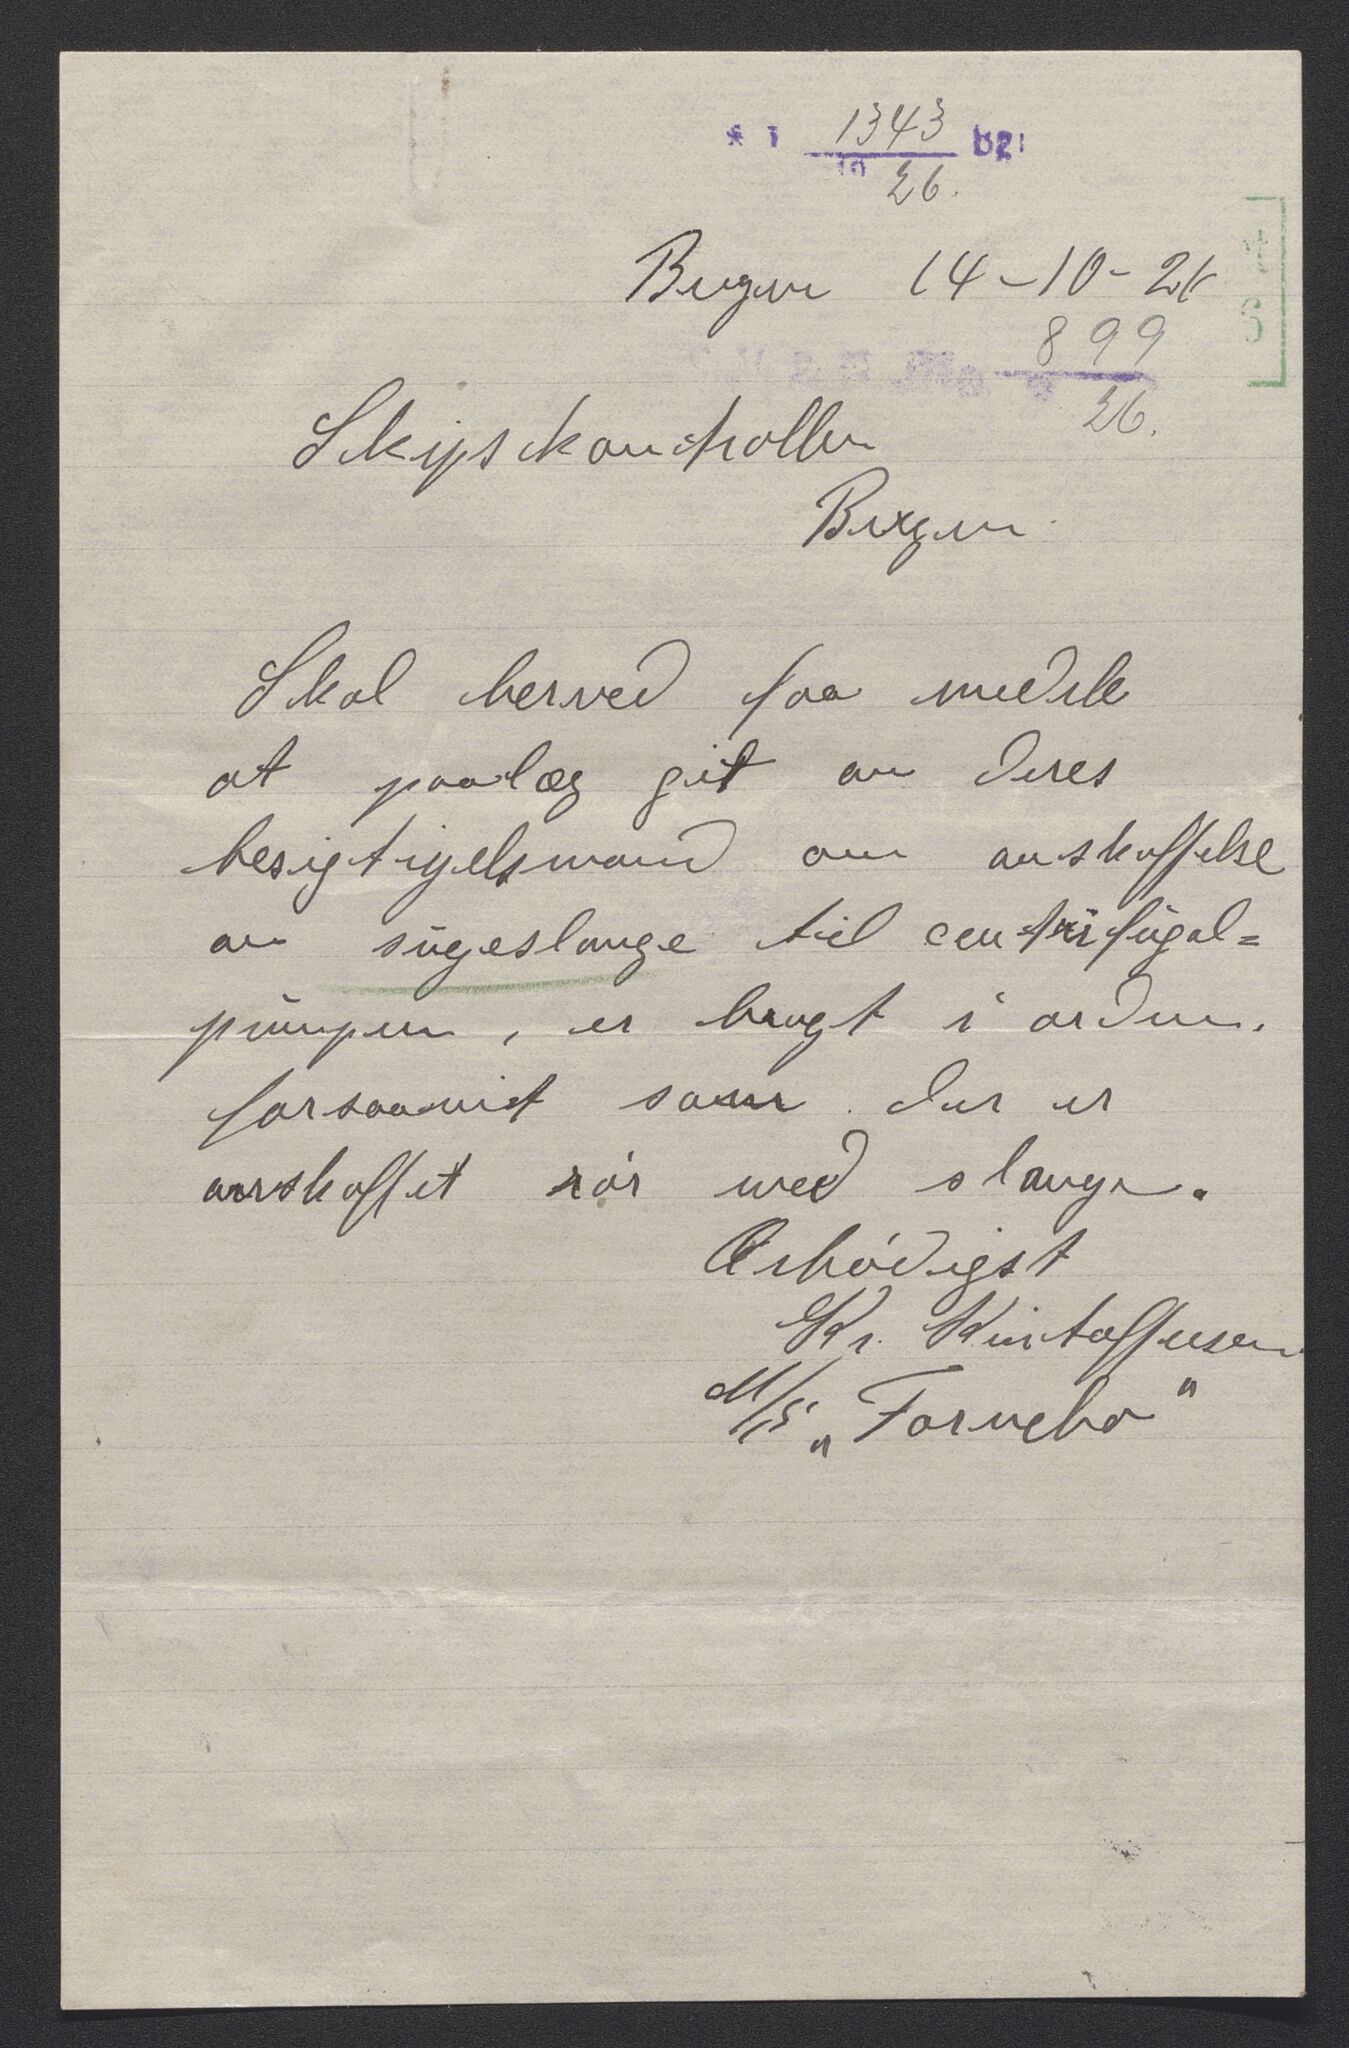 1343
10 26.
Bergen 14-10-26
899
26.
Skipskontrollen
Bergen.
Skal herved faa meddele
at paalæg git av Deres
besigtigelsmand om anskaffelse
av sugeslange til centrifugal=
pumpen, er bragt i orden.
forsaavidt som der er
anskaffet rór med slange.
Ærbódigst
Kr. Kristoffersen
M/S „Fornebo"